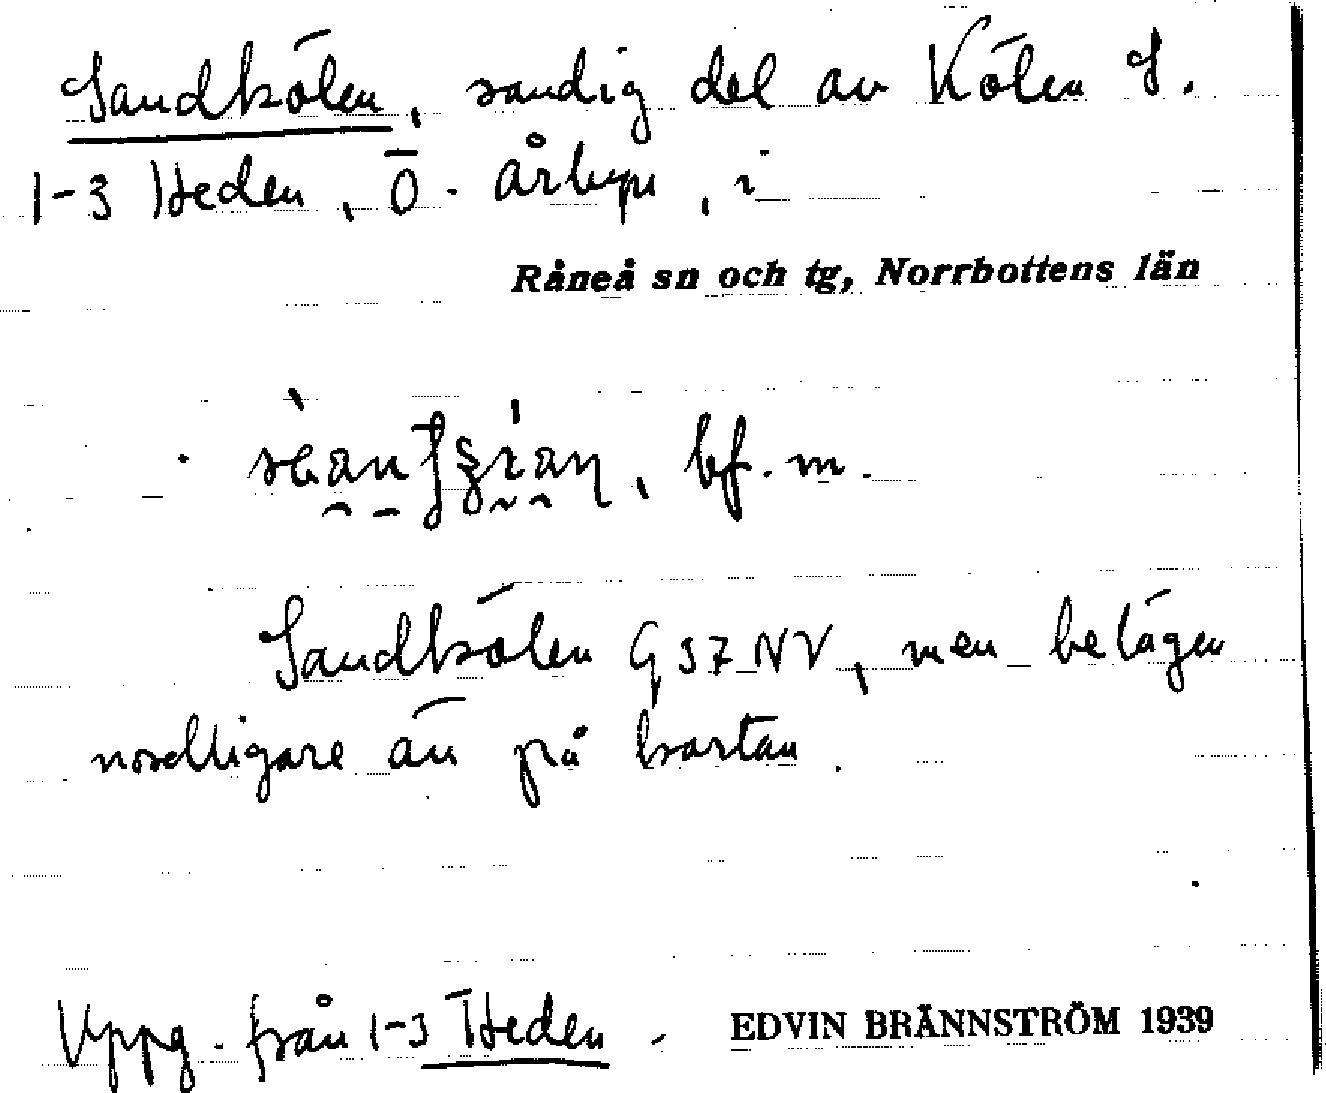 Sandkölen, sandig del av Kölen S.
1-3 Heden, Ö. årbyn, i
Råneå sn och tg, Norrbottens län
bf. m.
Sandkölen G 37 NV, men belägen
nordligare än på kartan.
Uppg. från 1-3 Heden. EDVIN BRÄNNSTRÖM 1939